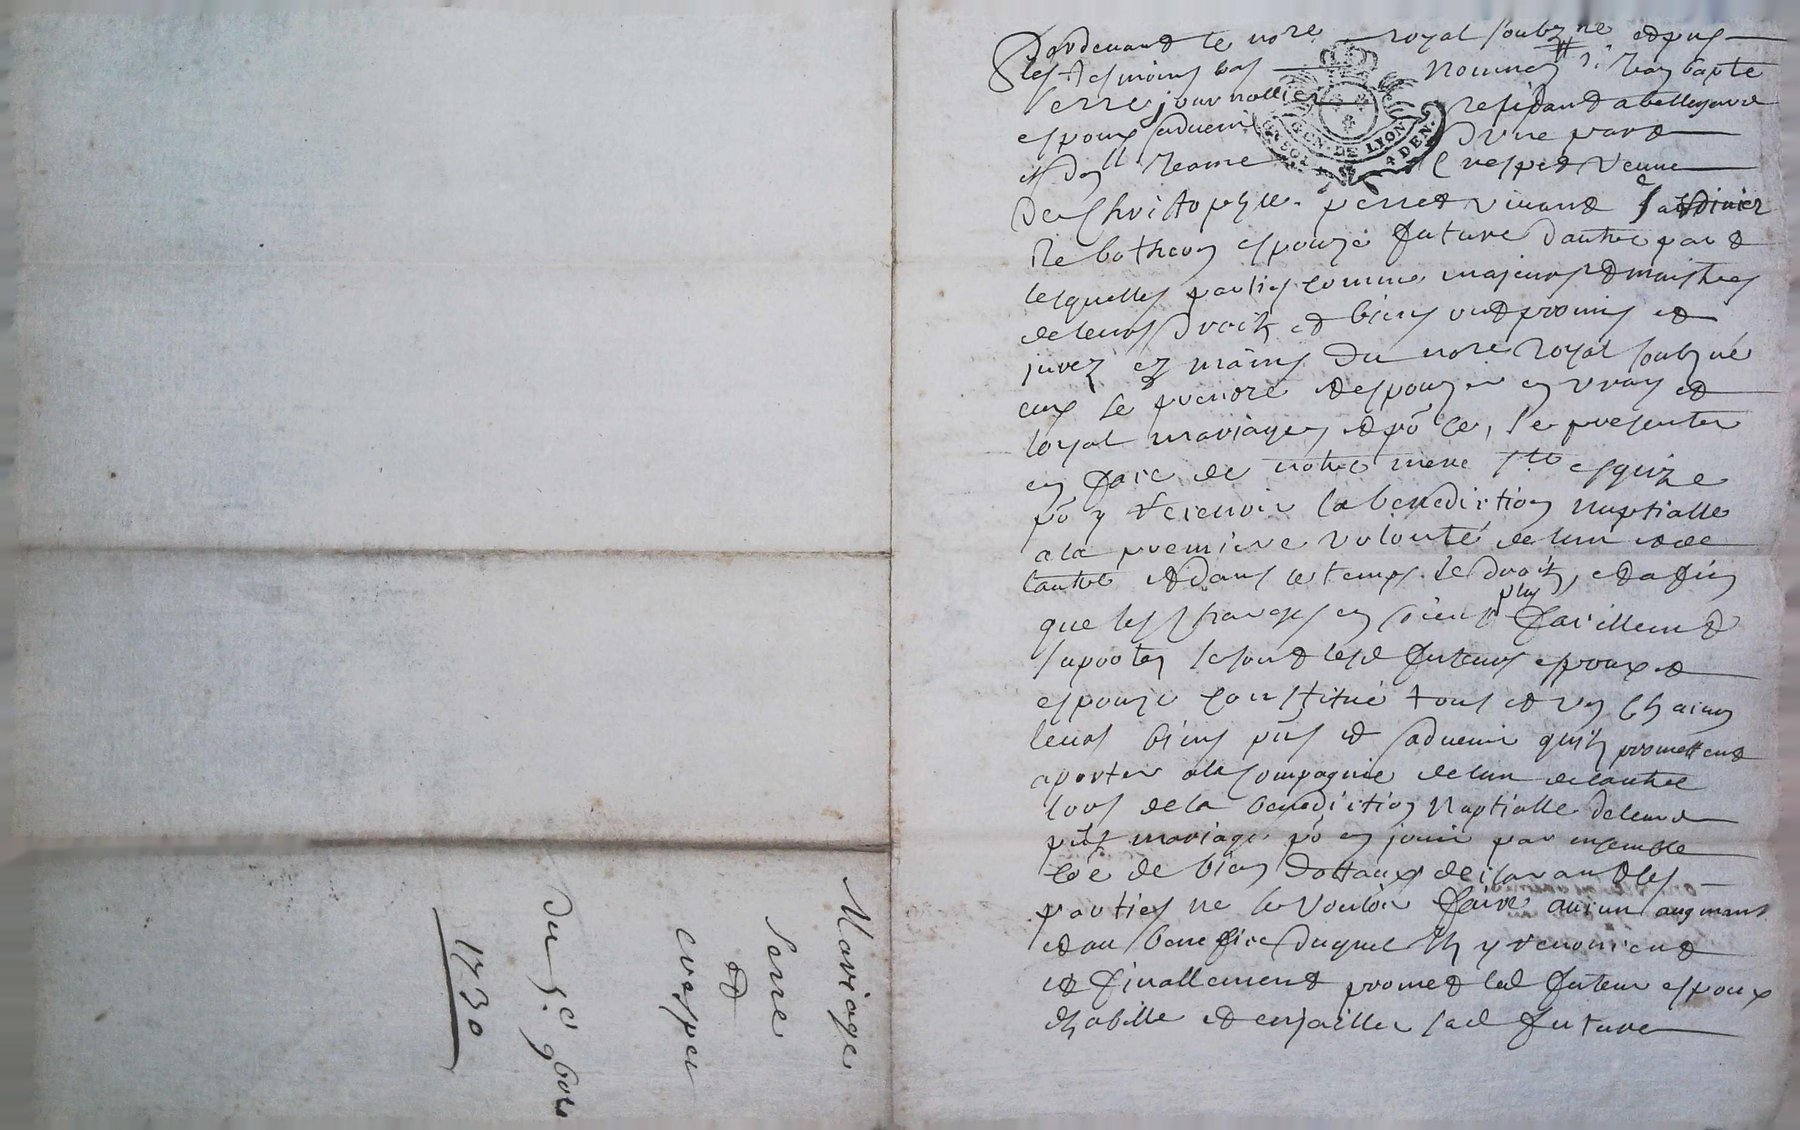 Pardevant le nore royal soubzne et pns
les tesmoins bas nommez sr Jean bapte
serre journallier residant a bellegarde
espoux advenir d'une part
et dlle Jeanne Crespet veuve
de Christophle perret vivant jardinier
de botheon espouze future dautre part
lesquelles parties comme majeurs et maistres
de leurs droitz et biens ont promis et
jurez ez mains du nore royal soubzne
eux se prendre et espouzer en vray et
loyal mariage, et po ce, se presenter
en face de notre mere ste esglize
po y recevoir la benediction nuptialle
a la premiere volonté de lun et de
lautre et dans le temps de droit, et afin
que les charges en soient plus facillement
suportez se sont lesd futeurs espoux et
espouze constitué tous et un chacun
leurs biens pns et advenir quilz promettent
aporter a la compagnie de lun de lautre
lors de la benediction nuptialle de leur
pnt mariage po en jouir par ensemble
coe de bien dottaux declarant les
parties ne se vouloir faire aucun augmant
et au benefice duquel ilz y renoncent
et finallement promet led futeur espoux
habille et enjailler lad future
GEN. DE LYON
4 DEN.
Mariage
serre
et
crespet
Du 5e 9bre
1730